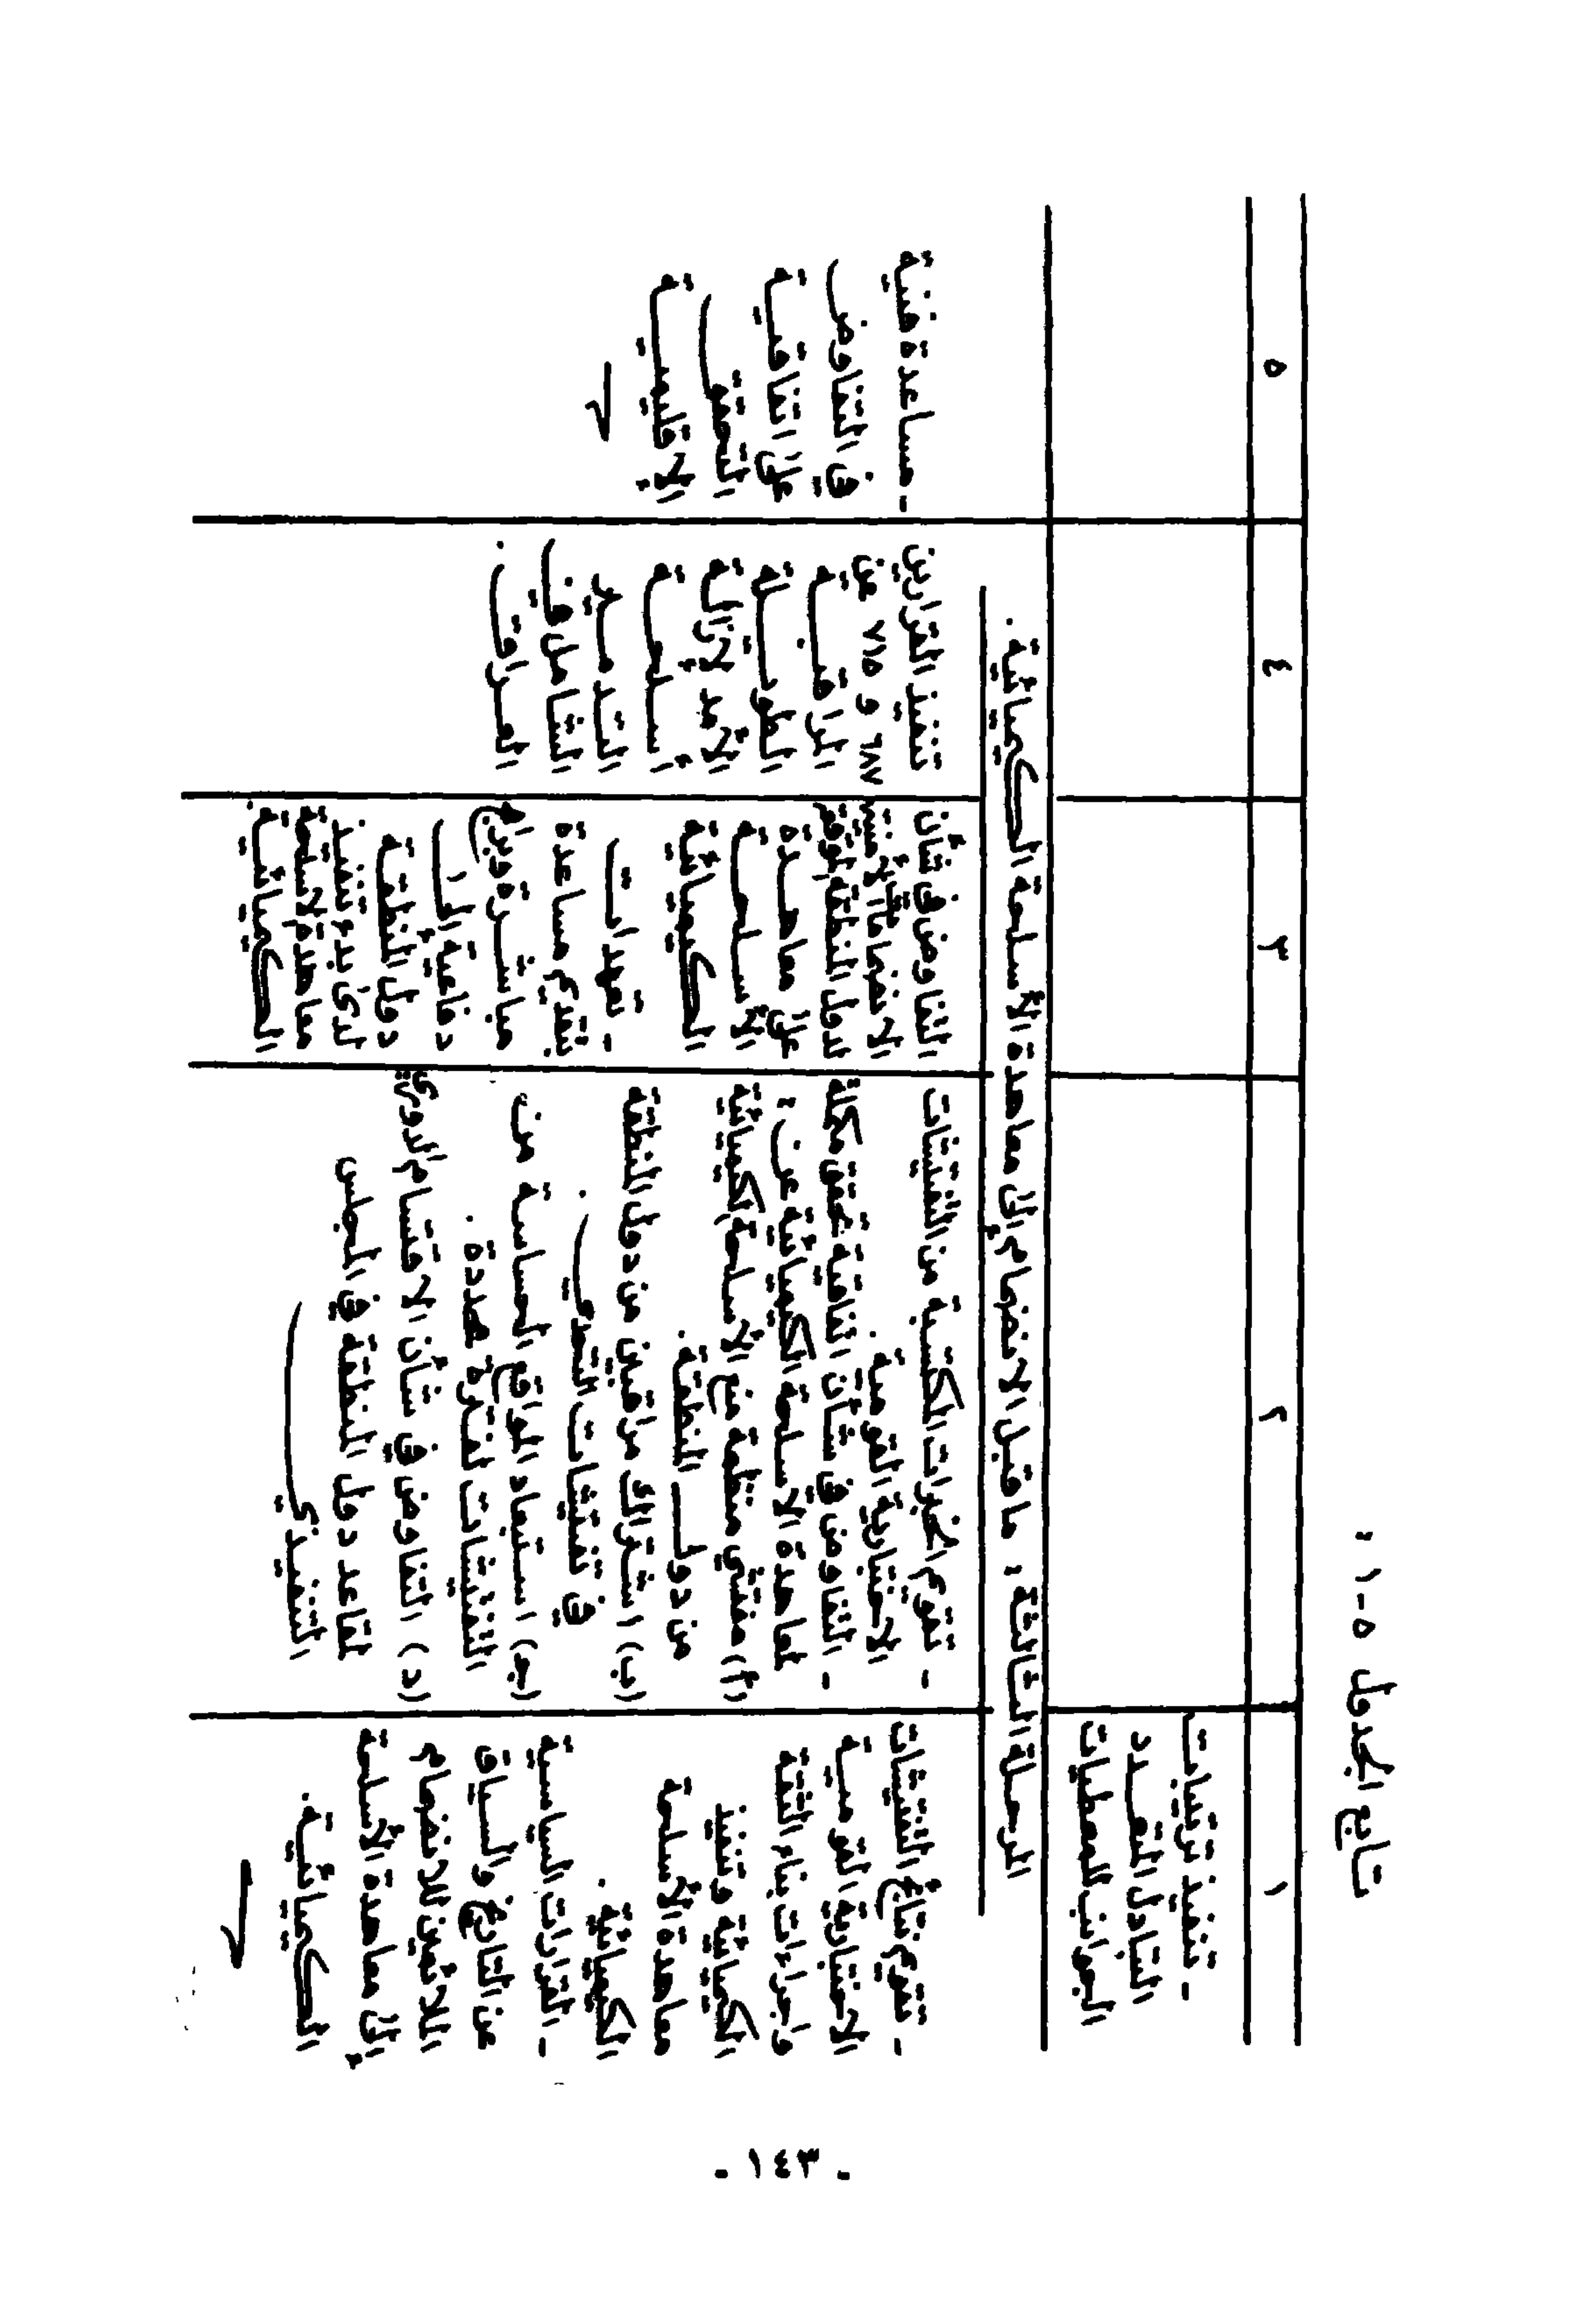 تابع الجدول ٥-١ :
١
٢
٣
٤
٥
- تنفيذ ترتيبات
التبادل المتعدد
الجوانب للمعطيات
المرحلة الثالثة : ما قبل الانضمام إلى معاهدة الأسلحة الكيميائية .
- تقويم نتائج التفتيشات
الاختبارية القومية
وإجراءات بناء الثقة
الكيميائية وتنفيذ
معاهدة الأسلحة
الكيميائية .
- القرارات السياسية
عن التاريخ والسياق
الملائمين للانضمام
إلى معاهدة الأسلحة
الكيميائية .
- تقويم الخبرات المكتسبة من التفتيشات
الاختبارية القومية .
- التفاوض في شأن اتفاقية تحقق مكملة
لمعاهدة الأسلحة الكيميائية عن :
(أ) مفتشي منظمة منع الأسلحة الكيميائية
من دول المنطقة .
(ب) اشتراك مراقبين من دول المنطقة
في تفتيشات التحدي .
(جـ) استبعاد المواقع الحساسة من
التفتيشات لفترة محددة .
(د) التفاوض في شأن الاقتسام الدوري
لمقاعد دول المنطقة في المجلس
التنفيذي
التفاوض في شأن
الانضمام
لدول المنطقة
على معاهدة
الأسلحة
الكيميائية
- تعهدات
بتقديم مساعدة
مباشرة وبرامج
دفاعية إلى
دول المنطقة
لدى بدء تنفيذ
معاهدة الأسلحة
الكيميائية .
تنفيذ القرارين
٦٨٧ و ٧١٥ عن
المراقبة
الطويلة
الأمد لإزالة
أسلحة
التدمير
الشامل في
العراق .
- مساعدة فنية
في التفاوض
على اتفاقية
التحقق
الإقليمية
- ١٤٣ -